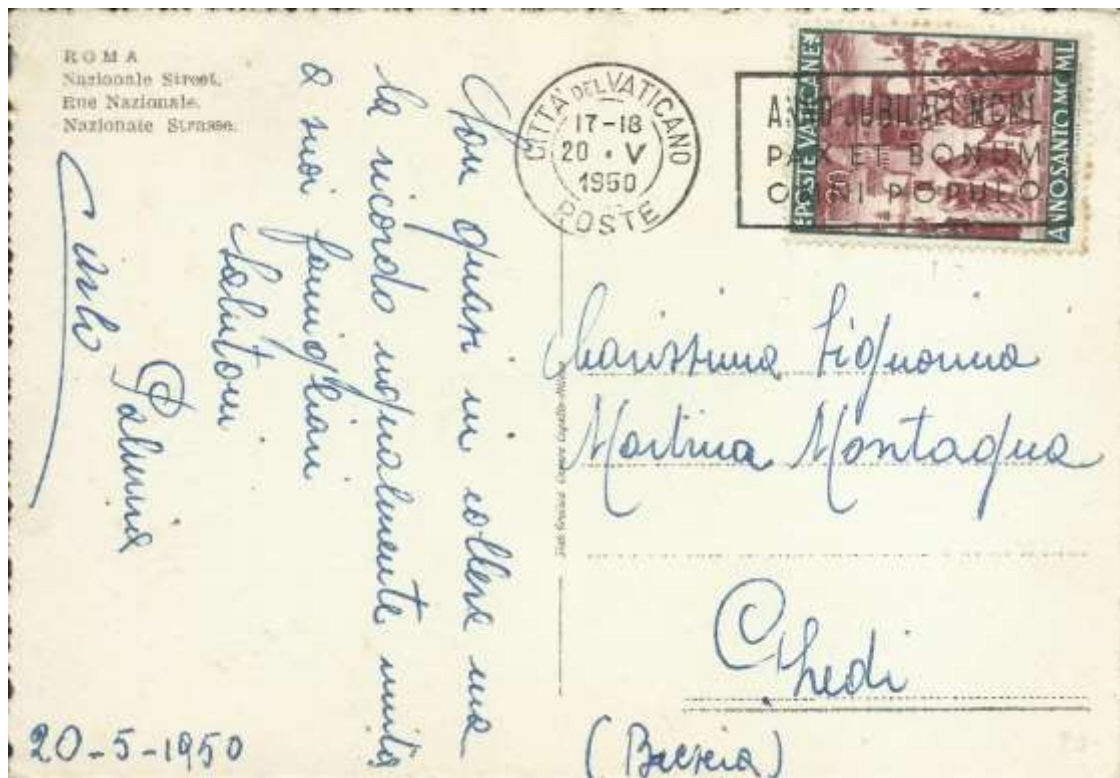 ROMA
Nazionale Street.
Rue Nazionale.
Nazionale Strasse.
Son quasi in collera ma
la ricordo ugualmente unita
a suoi famigliari
Salutoni
Palmira
Carlo
20-5-1950
CITTÀ DEL VATICANO
17-18
20 · V
1950
POSTE
ANNO JUBILAEI MCML
PAX ET BONUM
OMNI POPULO
POSTE VATICANE
ANNO SANTO MCML
Carissima Signorina
Martina Montagna
Ghedi
(Brescia)